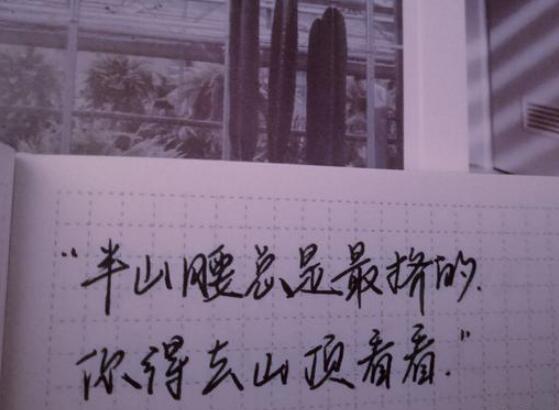 “半山腰总是最挤的.
你得去山顶看看.”